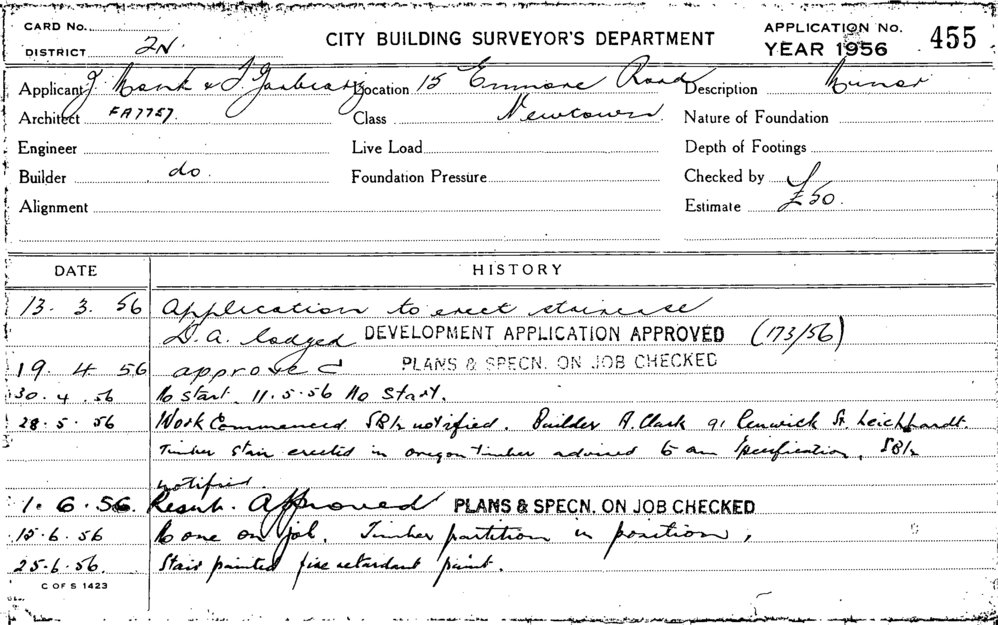 CARD No.
DISTRICT 2N.
CITY BUILDING SURVEYOR'S DEPARTMENT
APPLICATION No. 455
YEAR 1956
Applicant J Monk & J Location 15 Enmore Road Description Minor
Architect FA7757. Class Newtown Nature of Foundation
Engineer Live Load Depth of Footings
Builder do. Foundation Pressure Checked by
Alignment Estimate £50.
DATE HISTORY
13. 3. 56 Application to erect staircase
D.A. lodged DEVELOPMENT APPLICATION APPROVED (173/56)
19. 4 56 approved PLANS & SPECN. ON JOB CHECKED
30. 4. 56 No start. 11.5.56 No Start.
28. 5. 56 Work Commenced notified. Builder A. Clark 91 Renwick St. Leichhardt.
Timber Stair erected in oregon timber advised to am Specification.
notified.
1. 6. 56. Resub. Approved PLANS & SPECN. ON JOB CHECKED
15.6.56 No one on job. Timber partition in position,
25.6.56. Stair painted fire retardant paint.
C OF S 1423